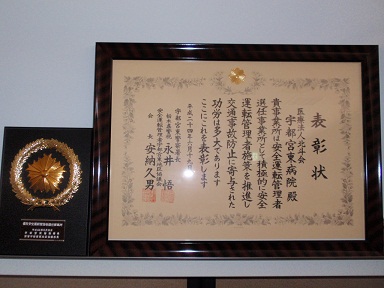 表彰状
医療法人北斗会
宇都宮東病院 殿
貴事業所は安全運転管理者
選任事業所として積極的に安全
運転管理者施策を推進し
交通事故防止に寄与された
功労は多大であります
ここにこれを表彰します
平成二十四年六月十九日
宇都宮東警察署長
永井 悟
会長 安納久男